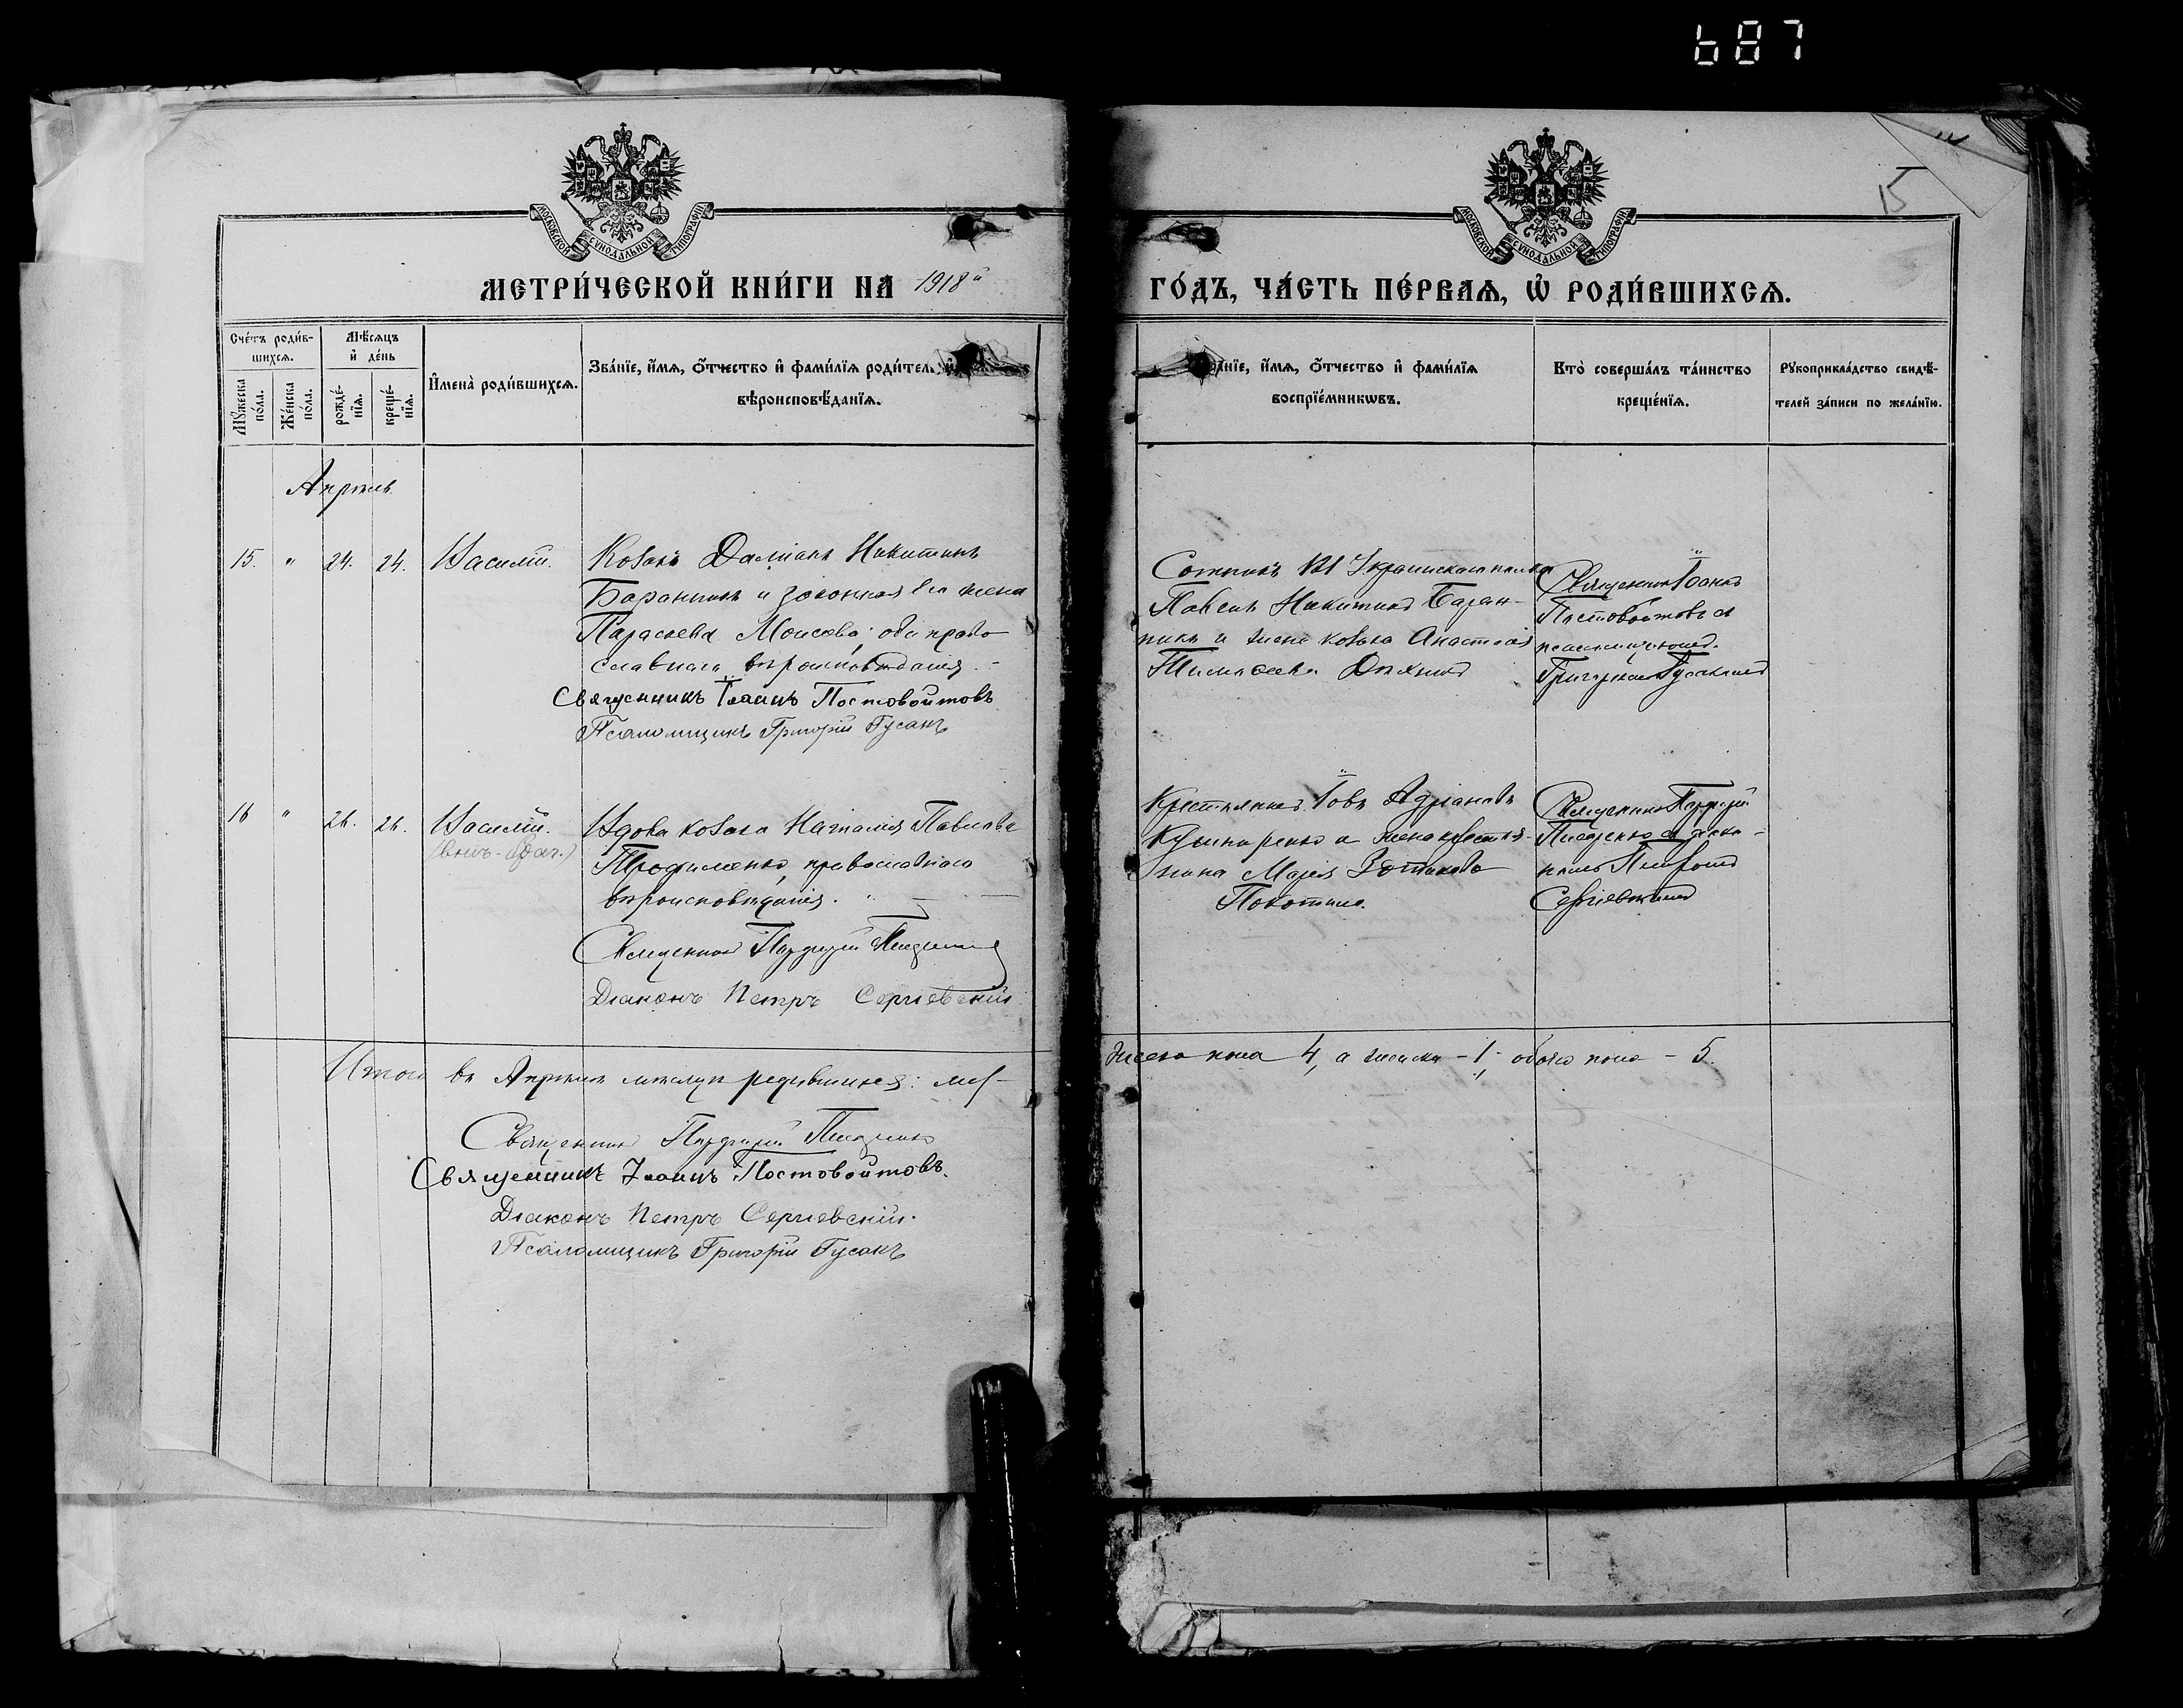 687
15
МОСКОВСКОЙ СѴНОДАЛЬНОЙ ТИПОГРАФІИ
МОСКОВСКОЙ СѴНОДАЛЬНОЙ ТИПОГРАФІИ
МЕТРИ́ЧЕСКОЙ КНИ́ГИ НА 1918й
ГО́ДЪ, ЧА́СТЬ ПЕ́РВАѦ, Ѡ҆ РОДИ́ВШИХСѦ.
Сче́тъ роди́в-
шихсѧ.
Мѣ́сѧцъ
и҆ де́нь
Мꙋ́жеска
по́ла.
Же́нска
по́ла.
рожде́-
нїѧ.
креще́-
нїѧ.
И҆мена̀ роди́вшихсѧ.
Зва́нїе, и҆́мѧ, ѻ҆́тчество и҆ фами́лїѧ родител
вѣроисповѣ́данїѧ.
и҆́мѧ, ѻ҆́тчество и҆ фами́лїѧ
воспрїе́мникѡвъ.
Кто̀ соверша́лъ та́инство
креще́нїѧ.
Рꙋкоприкла́дство свидѣ́-
телей за́писи по жела́нїю.
Апрѣль
15. " 24. 24. Василій.
Козакъ Даміанъ Никитинъ
Баранникъ и законная его жена
Параскева Моисеева; оба право
славнаго вѣроисповѣданія. -
Священникъ Іоаннъ Постовойтовъ
Псаломщикъ Григорій Гусакъ
Сотникъ Украинскаго полка
Павелъ Никитинъ Баран-
никъ и жена козака Анастасія
Тимофеева
Священникъ Іоаннъ
Постовойтовъ съ
псаломщикомъ
Григоріемъ Гусакомъ
16 " 26. 26. Василій.
Вдова козака Наталія Павлова
Трофименко, православнаго
вѣроисповѣданія.
Священникъ
Діаконъ Петръ Сергіевскій
Крестьянинъ Іовъ Адріановъ
Кушнаренко и жена крестья-
нина Марія
Покотило.
Священникъ
съ діако-
номъ Петромъ
Сергіевскимъ
Итого въ Апрѣлѣ мѣсяцѣ родившихся: муж-
жеска пола 4, а женска - 1; обоего пола - 5.
Священникъ
Священникъ Іоаннъ Постовойтовъ.
Діаконъ Петръ Сергіевскій.
Псаломщикъ Григорій Гусакъ